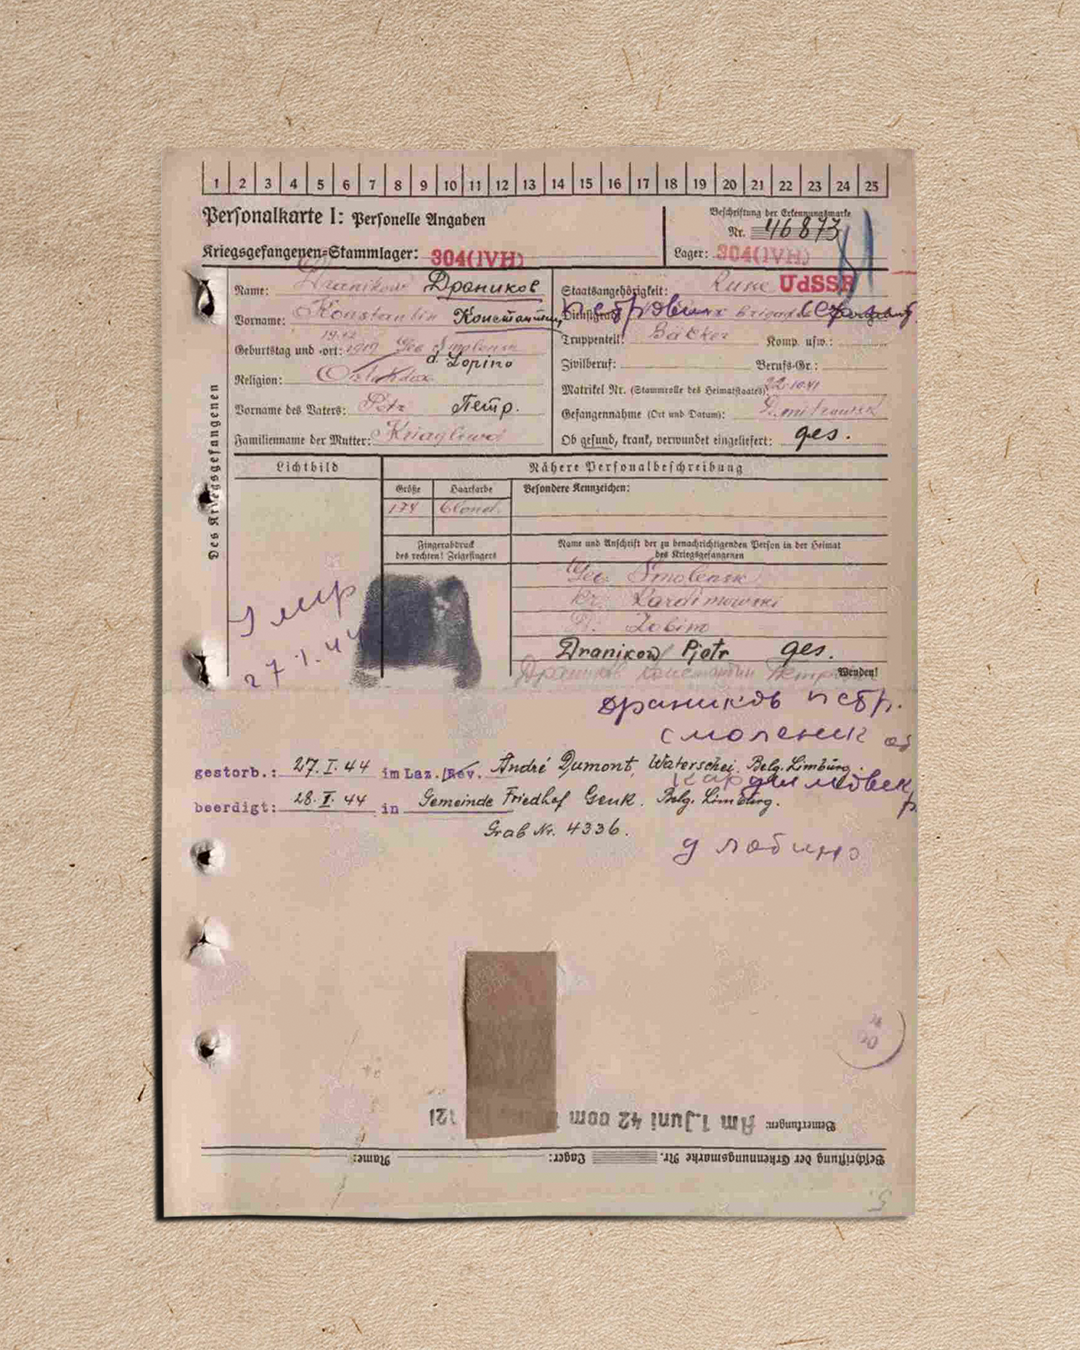 1 2 3 4 5 6 7 8 9 10 11 12 13 14 15 16 17 18 19 20 21 22 23 24 25
Personalkarte I: Personelle Angaben
Beschriftung der Erkennungsmarke
Nr. 46873
Kriegsgefangenen-Stammlager: 304(IVH)
Lager: 304(IVH)
Des Kriegsgefangenen
Name: Dranikow Драников
Vorname: Konstantin Константин
Geburtstag und -ort: 1919 Geb. Smolensk
d. Lopino
Religion: Ortodox
Vorname des Vaters: Petr Петр.
Familienname der Mutter:
Staatsangehörigkeit: Russe UdSSR
Dienstgrad:
Truppenteil: Bäcker Komp. usw.:
Zivilberuf: Berufs-Gr.:
Matrikel Nr. (Stammrolle des Heimatstaates): 22.10.41
Gefangennahme (Ort und Datum):
Ob gesund, krank, verwundet eingeliefert: ges.
Lichtbild
Nähere Personalbeschreibung
Größe Haarfarbe Besondere Kennzeichen:
174 blond.
Fingerabdruck
des rechten! Zeigefingers
Name und Anschrift der zu benachrichtigenden Person in der Heimat
des Kriegsgefangenen
Geb. Smolensk
Kardimowski
Lobino
Dranikow Pjotr ges.
Драников Константин Петр
Wenden!
Умер
27.1.44
Драников петр.
смоленск об
gestorb.: 27.I.44 im Laz./Rev. André Dumont, Waterschei, Belg. Limburg.
кардимовск
beerdigt: 28.I.44 in Gemeinde Friedhof Genk. Belg. Limburg.
Grab Nr. 4336.
д лобино
Bemerkungen: Am 1. Juni 42 vom
121
Beschriftung der Erkennungsmarke Nr. Lager: Name: